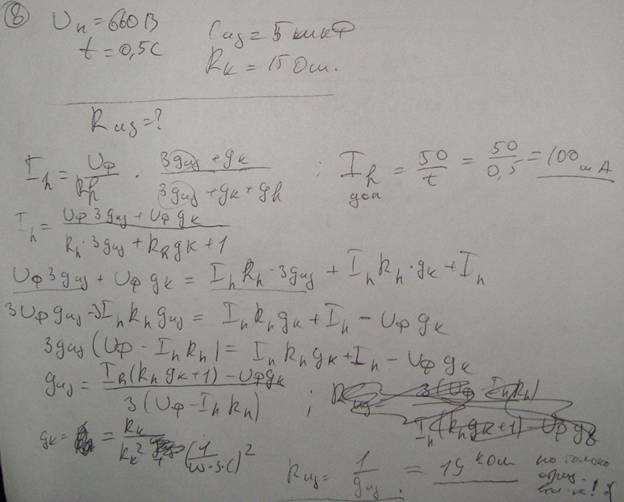 ⑧ Uл = 660 В
t = 0,5 с
Cиз = 5 мкФ
Rк = 15 Ом.
Rиз = ?
Ih = Uф/Rh · (3gиз + gк)/(3gиз + gк + gh) ; Ih доп = 50/t = 50/0,5 = 100 mA
Ih = (Uф 3gиз + Uф gк)/(Rh · 3gиз + Rh gк + 1)
Uф 3gиз + Uф gк = Ih Rh · 3gиз + Ih Rh · gк + Ih
3Uф gиз - 3Ih Rh gиз = Ih Rh gк + Ih - Uф gк
3gиз (Uф - Ih Rh) = Ih Rh gк + Ih - Uф gк
gиз = (Ih (Rh gк + 1) - Uф gк)/(3 (Uф - Ih Rh)) ;
gк = = Rк/Rк² (1/ω·3C)²
Rиз = 1/gиз = 19 кОм но только